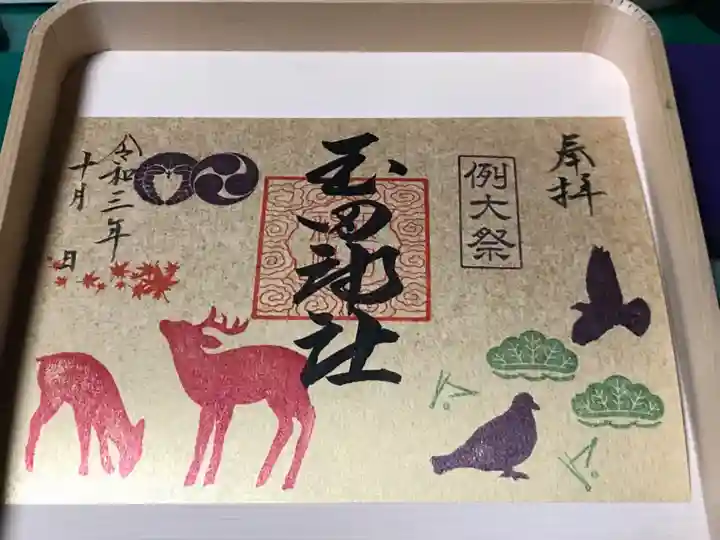 奉拝
例大祭
玉田神社
令和三年
十月 日